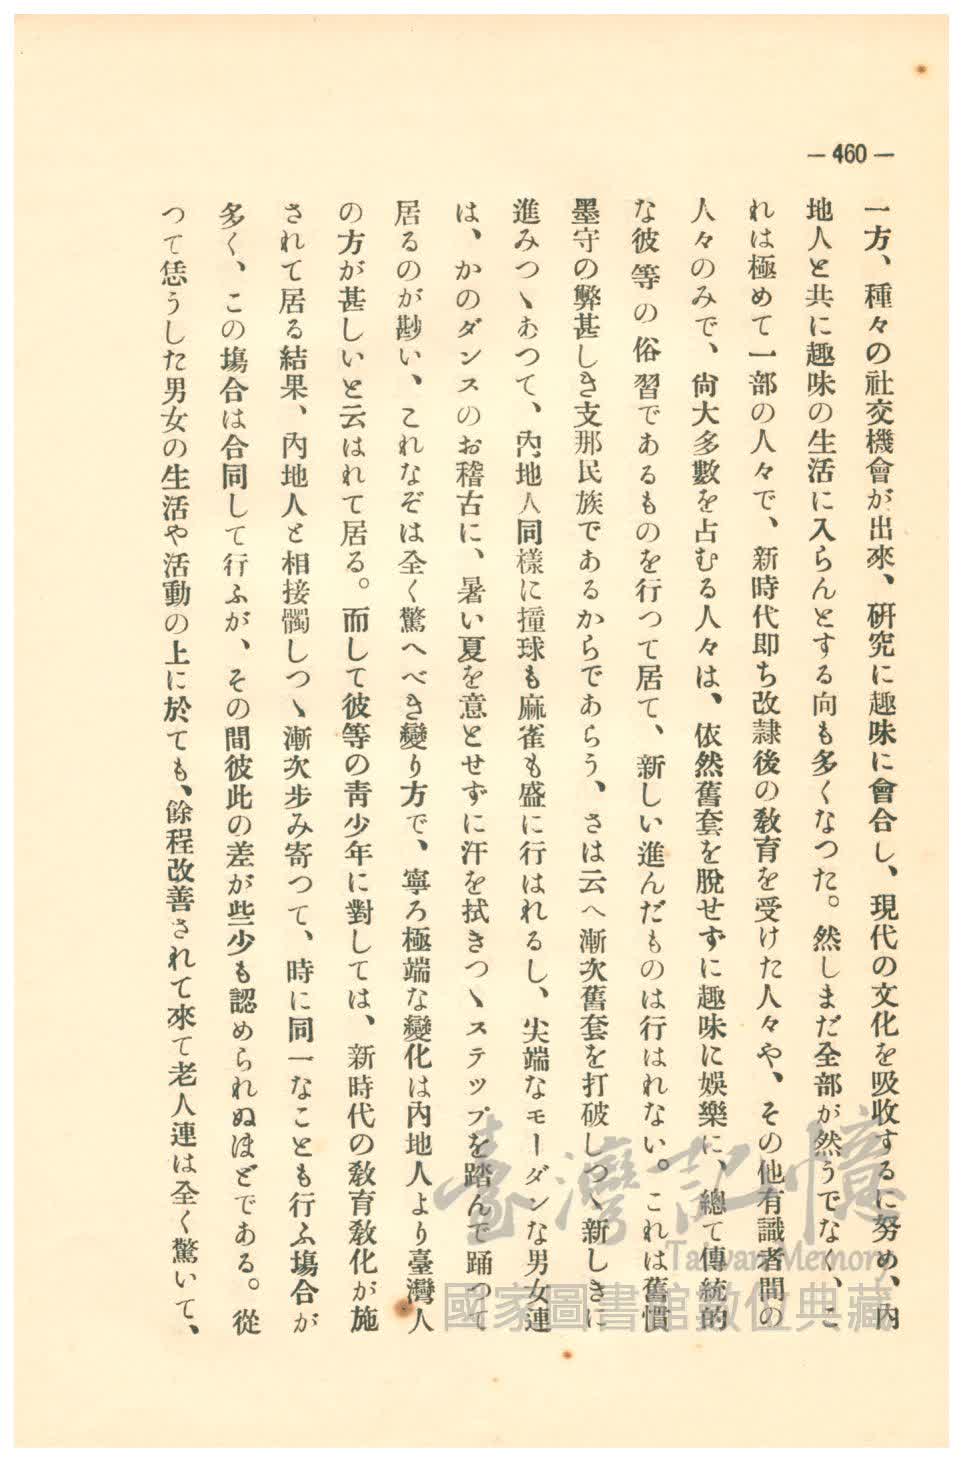 — 460 —
一方、種々の社交機會が出來、硏究に趣味に會合し、現代の文化を吸收するに努め、內
地人と共に趣味の生活に入らんとする向も多くなつた。然しまだ全部が然うでなく、こ
れは極めて一部の人々で、新時代卽ち改隷後の敎育を受けた人々や、その他有識者間の
人々のみで、尙大多數を占むる人々は、依然舊套を脫せずに趣味に娛樂に、總て傳統的
な彼等の俗習であるものを行つて居て、新しい進んだものは行はれない。これは舊慣
墨守の弊甚しき支那民族であるからであらう、さは云へ漸次舊套を打破しつゝ新しきに
進みつゝあつて、內地人同樣に撞球も麻雀も盛に行はれるし、尖端なモーダンな男女連
は、かのダンスのお稽古に、暑い夏を意とせずに汗を拭きつゝステツプを踏んで踊つて
居るのが尠い、これなぞは全く驚へべき變り方で、寧ろ極端な變化は內地人より臺灣人
の方が甚しいと云はれて居る。而して彼等の靑少年に對しては、新時代の敎育敎化が施
されて居る結果、內地人と相接觸しつゝ漸次步み寄つて、時に同一なことも行ふ塲合が
多く、この塲合は合同して行ふが、その間彼此の差が些少も認められぬほどである。從
つて恁うした男女の生活や活動の上に於ても、餘程改善されて來て老人連は全く驚いて、
臺灣記憶
Taiwan Memory
國家圖書館數位典藏